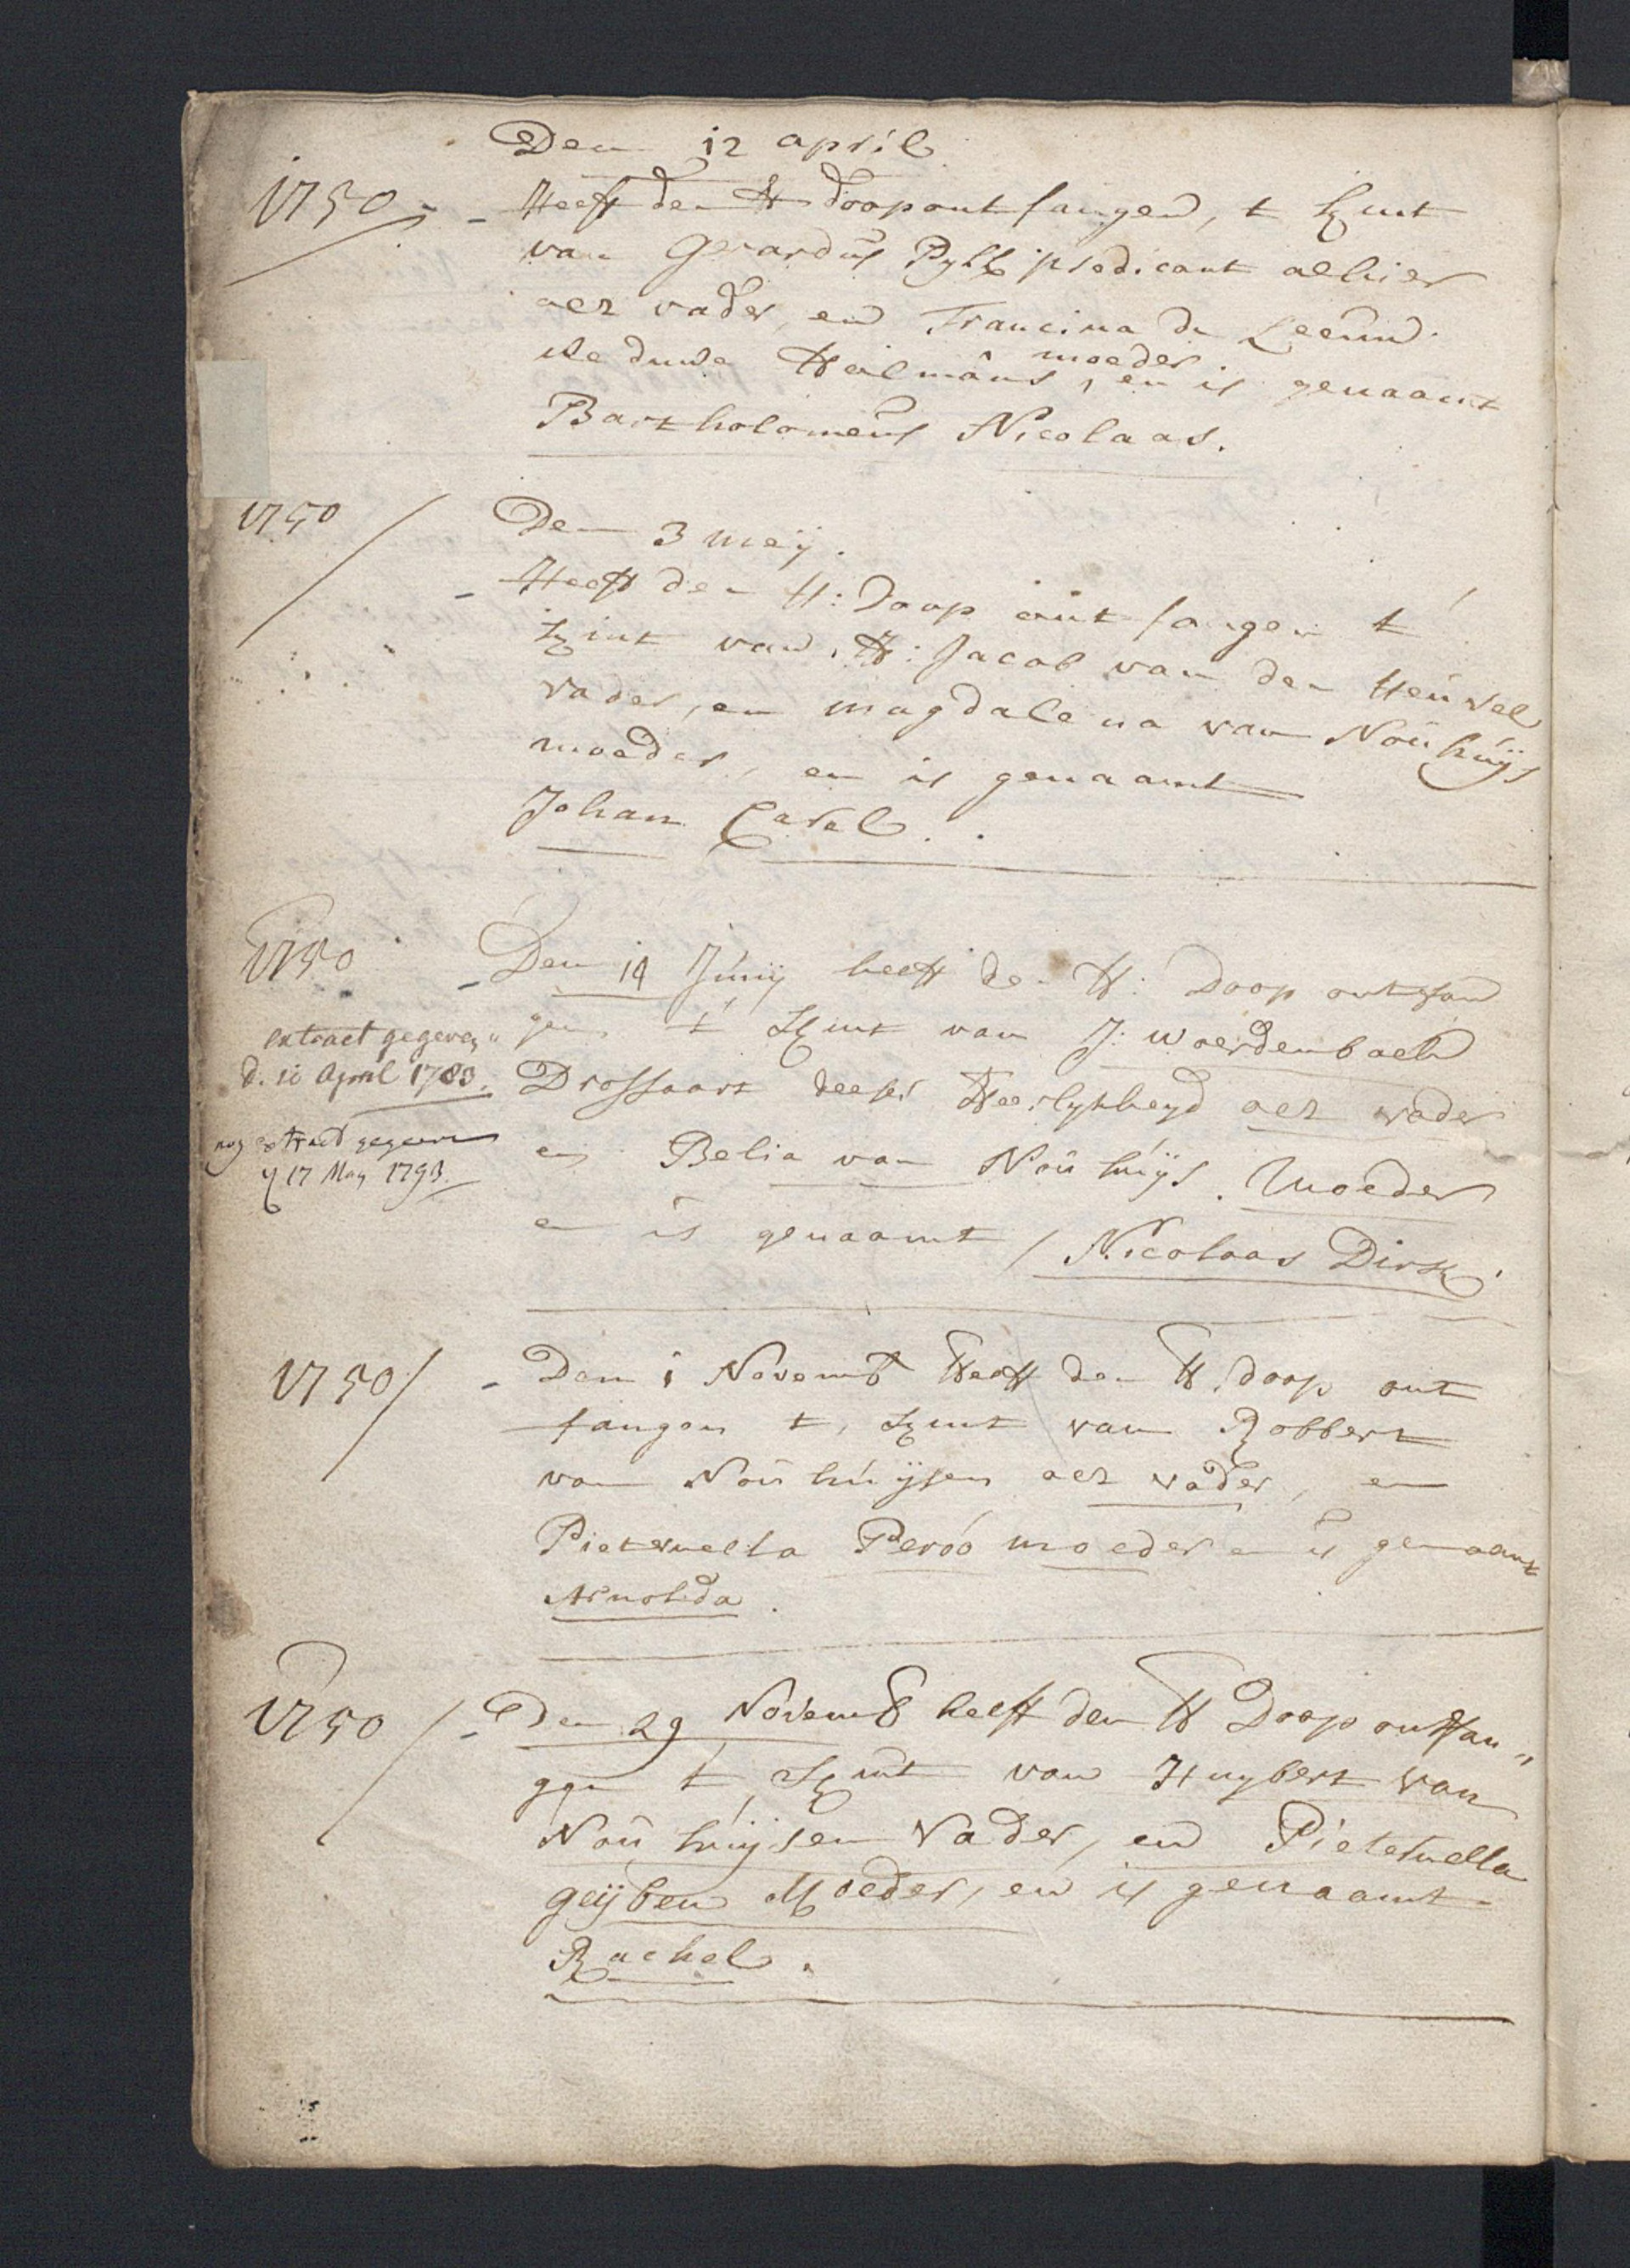 Den 12 april
1750 - Heeft den H doop ontfangen, t kint
van Gerardus Pyll predicant alhier
als vader, en Francina de Leeuw
weduwe Heilmans, moeder en is genaamt
Bartholomeus Nicolaas.
1750 Den 3 meij.
- Heeft den H: Doop ontfangen t
kint van, H: Jacob van den Heuvel
vader, en magdalena van Nouhuijs
moeder, en is genaamt
Johan Carel.
1750 - Den 14 Junij heeft de H: Doop ontfan
gen t kint van J: Woerdenbach
extract gegeven
d. 10 April 1783.
Drossaart deeser Heerlykheyd als vader
nog extract gegeven
17 May 1793.
en Belia van Nouhuijs. Moeder
en is genaamt / Nicolaas Dirk.
1750 / - Den 1 Novemb Heeft den H. doop ont
fangen t, kint van Robbert
van Nouhuijsen als vader, en
Pieternella Peroo moeder en is genaamt
Arnolda.
1750 / - Den 29 Novemb heeft den H Doop ontfan„
gen t kint van Huybert van
Nouhuijsen Vader, en Pieternella
geijben Moeder, en is genaamt
Rachel.